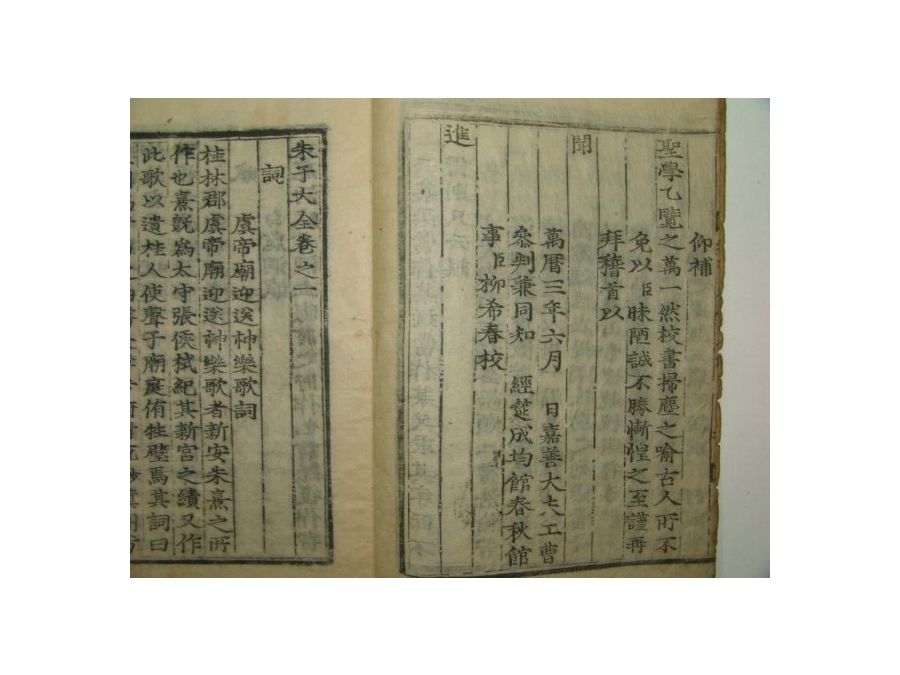 仰補
聖學乙覽之萬一然校書掃塵之喻古人所不
免以臣昧陋誠不勝慚惶之至謹再
拜稽首以
聞
萬曆三年六月 日嘉善大夫工曹
叅判兼同知 經筵成均館春秋館
事臣柳希春校
進
朱子大全卷之一
詞
虞帝廟迎送神樂歌詞
桂林郡虞帝廟迎送神樂歌者新安朱熹之所
作也熹旣爲太守張侯栻紀其新宮之績又作
此歌以遺桂人使聲于廟庭侑牲璧焉其詞曰